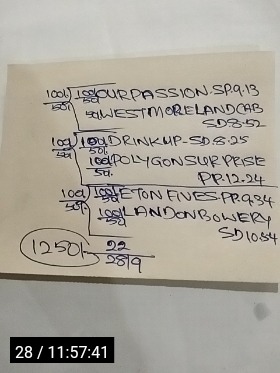 100/50/. 100/50 OUR PASSION. SP. 9.13
50/ WESTMORELAND CAB
SD 8.52
100/50 100/50/. DRINK UP - SD. 8.25
100/50/. POLYGON SURPRISE
PP. 12.24
100/50/. 100/50/. ETON FIVES - PP. 9.34
100/50/. LANDON BOWERY
SD 10.54
1250/- 22
2819
28 / 11:57:41